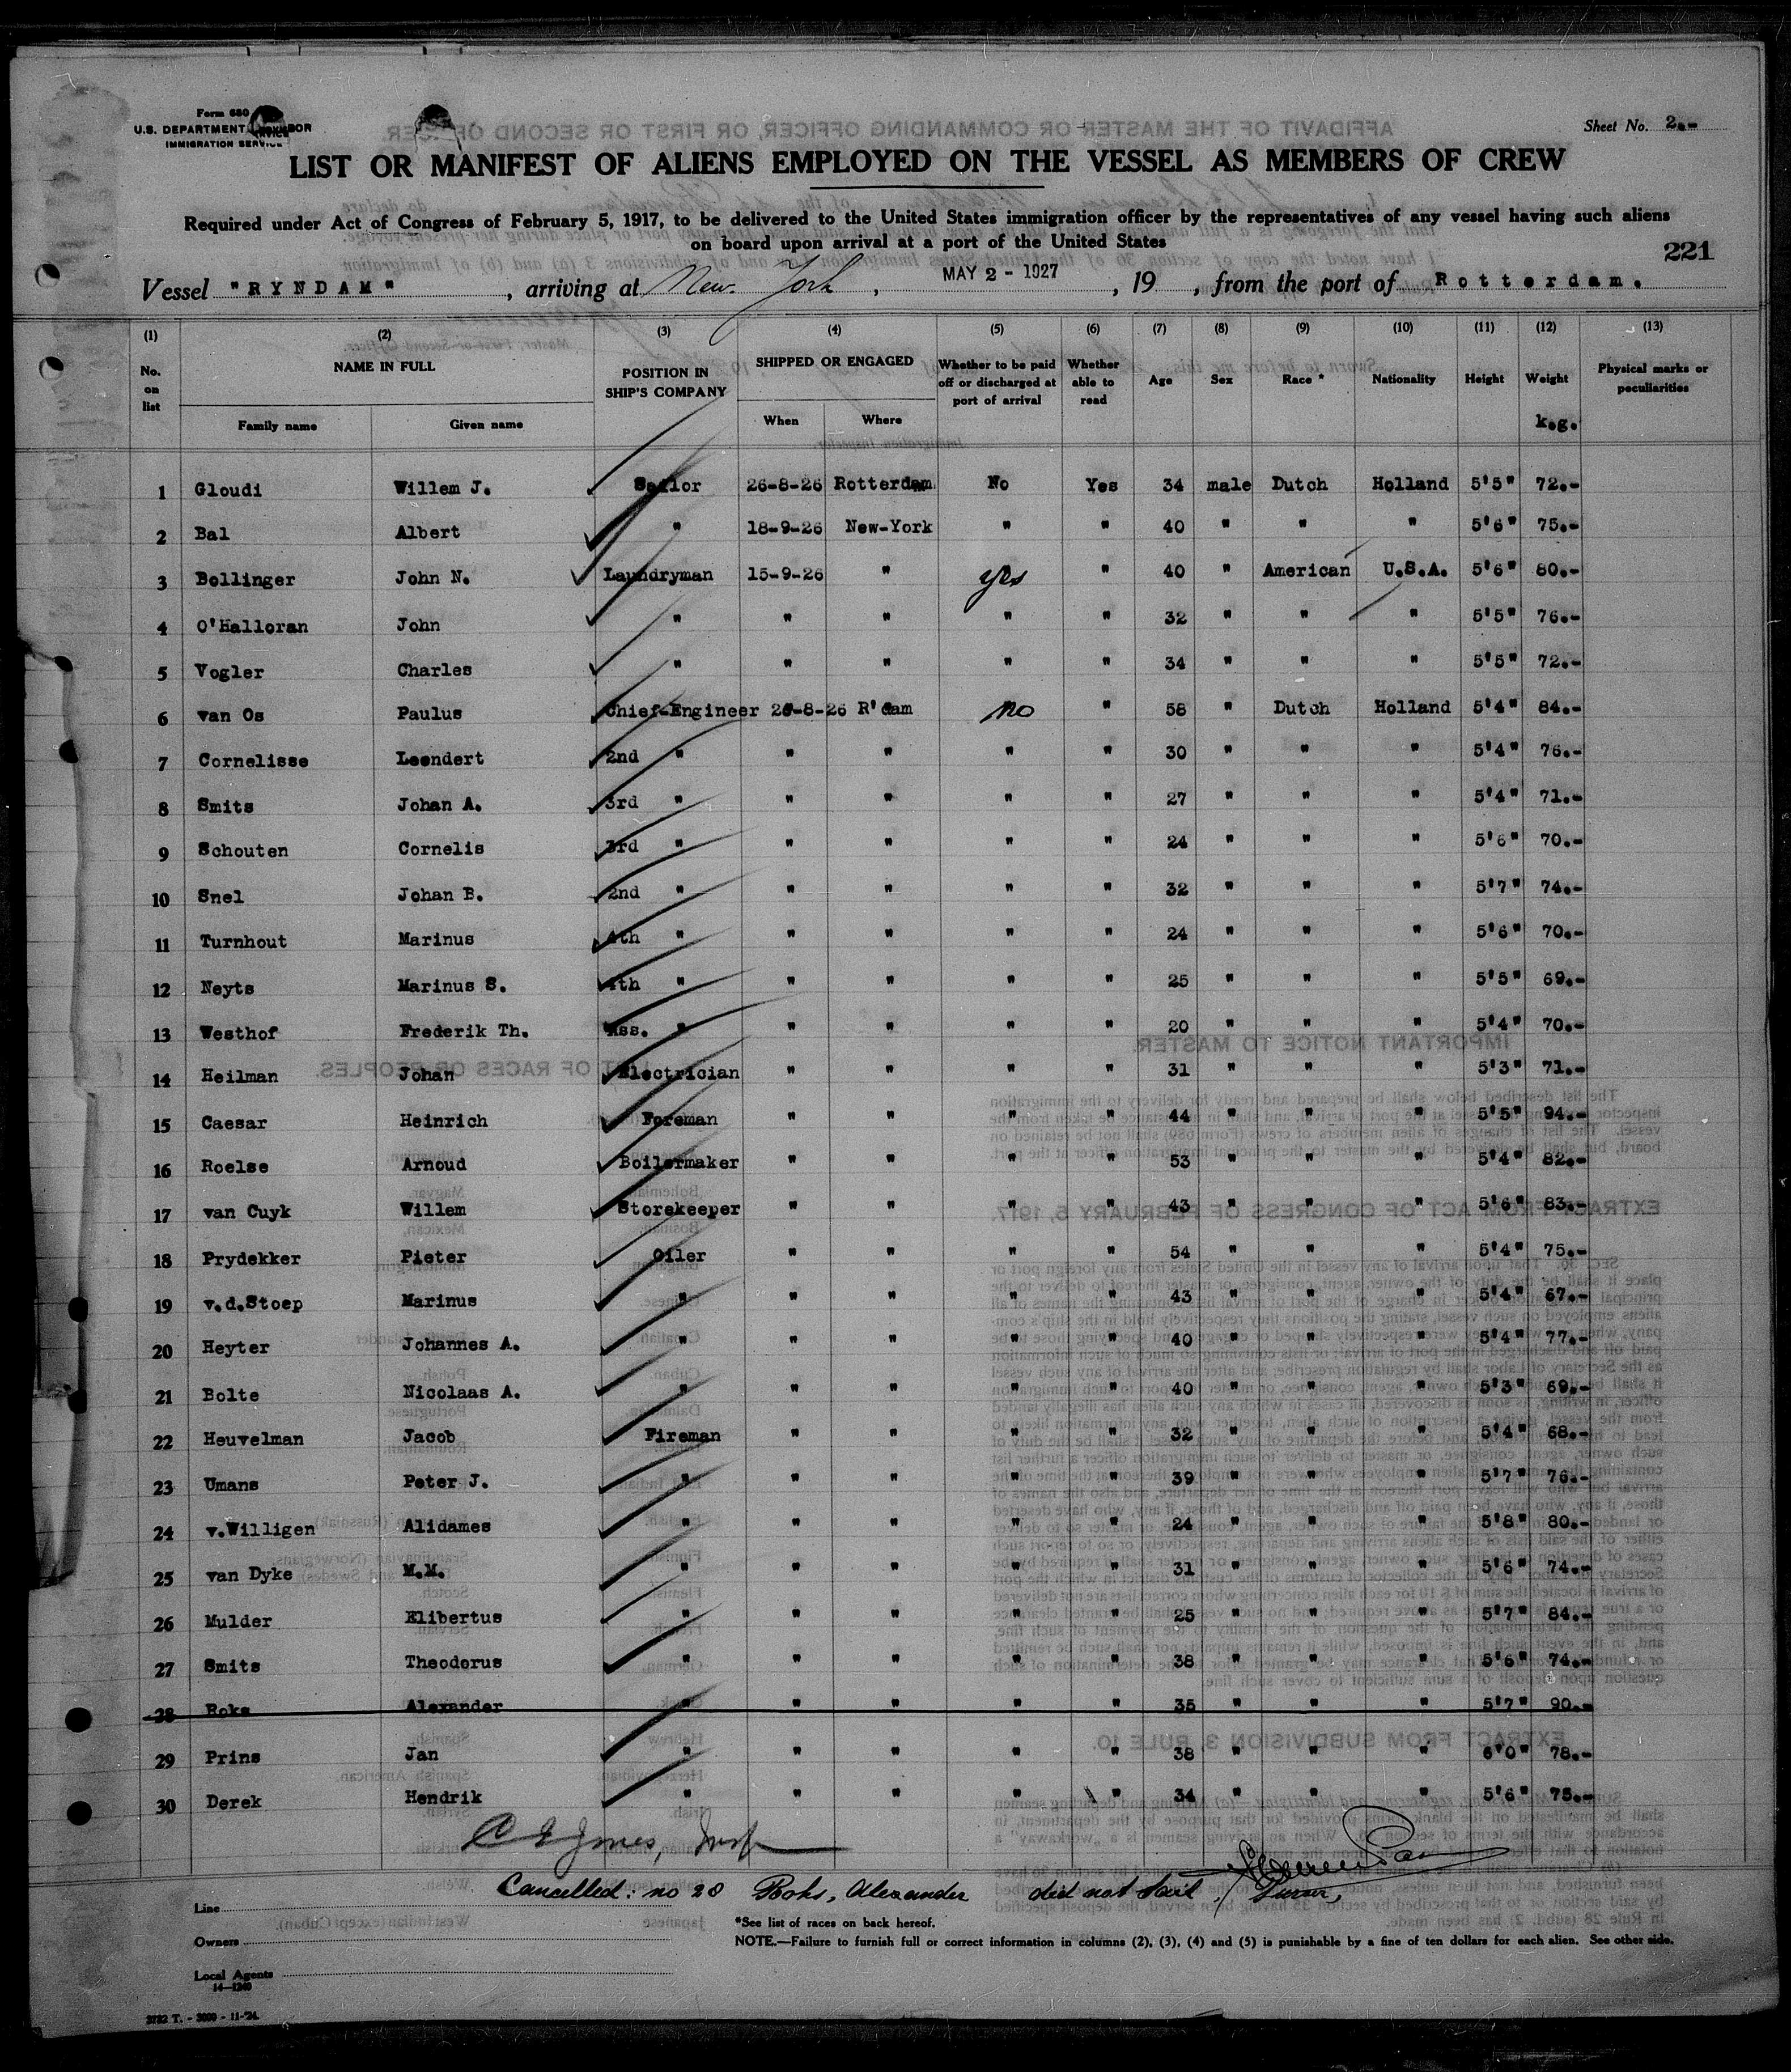 Form 680
U.S. DEPARTMENT OF LABOR
IMMIGRATION SERVICE
Sheet No. 2.-
LIST OR MANIFEST OF ALIENS EMPLOYED ON THE VESSEL AS MEMBERS OF CREW
Required under Act of Congress of February 5, 1917, to be delivered to the United States immigration officer by the representatives of any vessel having such aliens
on board upon arrival at a port of the United States
221
Vessel "RYNDAM", arriving at New York, MAY 2 - 1927, 19 , from the port of Rotterdam.
(1) (2) (3) (4) (5) (6) (7) (8) (9) (10) (11) (12) (13)
No. on list NAME IN FULL POSITION IN SHIP'S COMPANY SHIPPED OR ENGAGED Whether to be paid off or discharged at port of arrival Whether able to read Age Sex Race * Nationality Height Weight Physical marks or peculiarities
Family name Given name When Where k.g.
1 Gloudi Willem J. Sailor 26-8-26 Rotterdam No Yes 34 male Dutch Holland 5'5" 72.-
2 Bal Albert " 18-9-26 New-York " " 40 " " " 5'6" 75.-
3 Bollinger John N. Laundryman 15-9-26 " yes " 40 " American U.S.A. 5'6" 80.-
4 O'Halloran John " " " " " 32 " " " 5'5" 76.-
5 Vogler Charles " " " " " 34 " " " 5'5" 72.-
6 van Os Paulus Chief-Engineer 26-8-26 R'dam no " 58 " Dutch Holland 5'4" 84.-
7 Cornelisse Leendert 2nd " " " " " 30 " " " 5'4" 76.-
8 Smits Johan A. 3rd " " " " " 27 " " " 5'4" 71.-
9 Schouten Cornelis 3rd " " " " " 24 " " " 5'6" 70.-
10 Snel Johan B. 2nd " " " " " 32 " " " 5'7" 74.-
11 Turnhout Marinus 4th " " " " " 24 " " " 5'6" 70.-
12 Neyts Marinus S. 4th " " " " " 25 " " " 5'5" 69.-
13 Westhof Frederik Th. Ass. " " " " " 20 " " " 5'4" 70.-
14 Heilman Johan Electrician " " " " 31 " " " 5'3" 71.-
15 Caesar Heinrich Foreman " " " " 44 " " " 5'5" 94.-
16 Roelse Arnoud Boilermaker " " " " 53 " " " 5'4" 82.-
17 van Cuyk Willem Storekeeper " " " " 43 " " " 5'6" 83.-
18 Prydekker Pieter Oiler " " " " 54 " " " 5'4" 75.-
19 v.d.Stoep Marinus " " " " " 43 " " " 5'4" 67.-
20 Heyter Johannes A. " " " " " 40 " " " 5'4" 77.-
21 Bolte Nicolaas A. " " " " " 40 " " " 5'3" 69.-
22 Heuvelman Jacob Fireman " " " " 32 " " " 5'4" 68.-
23 Umans Peter J. " " " " " 39 " " " 5'7" 76.-
24 v.Willigen Alidames " " " " " 24 " " " 5'8" 80.-
25 van Dyke M.M. " " " " " 31 " " " 5'6" 74.-
26 Mulder Elibertus " " " " " 25 " " " 5'7" 84.-
27 Smits Theodorus " " " " " 38 " " " 5'6" 74.-
28 Roks Alexander " " " " " 35 " " " 5'7" 90.-
29 Prins Jan " " " " " 38 " " " 6'0" 78.-
30 Derek Hendrik " " " " " 34 " " " 5'6" 75.-
Jones, Insp
Cancelled: no 28 Roks, Alexander did not sail. Purser,
Line
*See list of races on back hereof.
Owners
NOTE.—Failure to furnish full or correct information in columns (2), (3), (4) and (5) is punishable by a fine of ten dollars for each alien. See other side.
Local Agents
14—1240
3782 T. - 3000 - 11-'24.